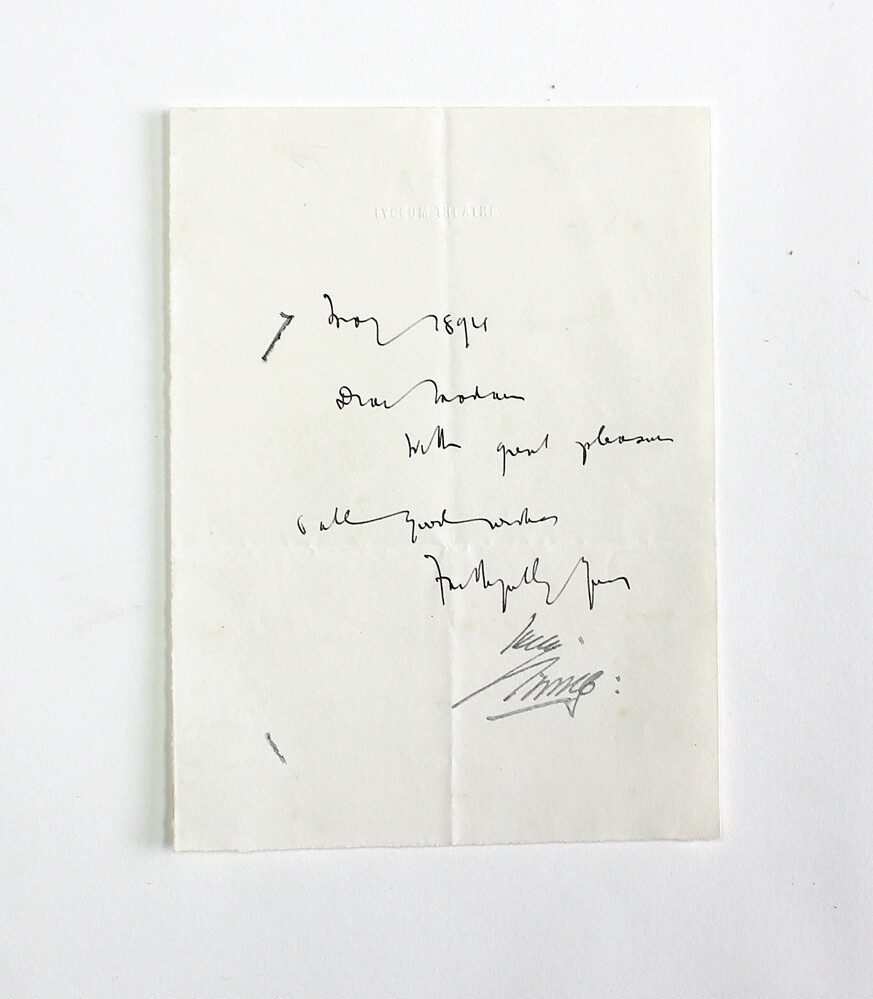 LYCEUM THEATRE
7 May 1894
Dear Madam
With great pleasure
& all good wishes
Faithfully Yours
Irving